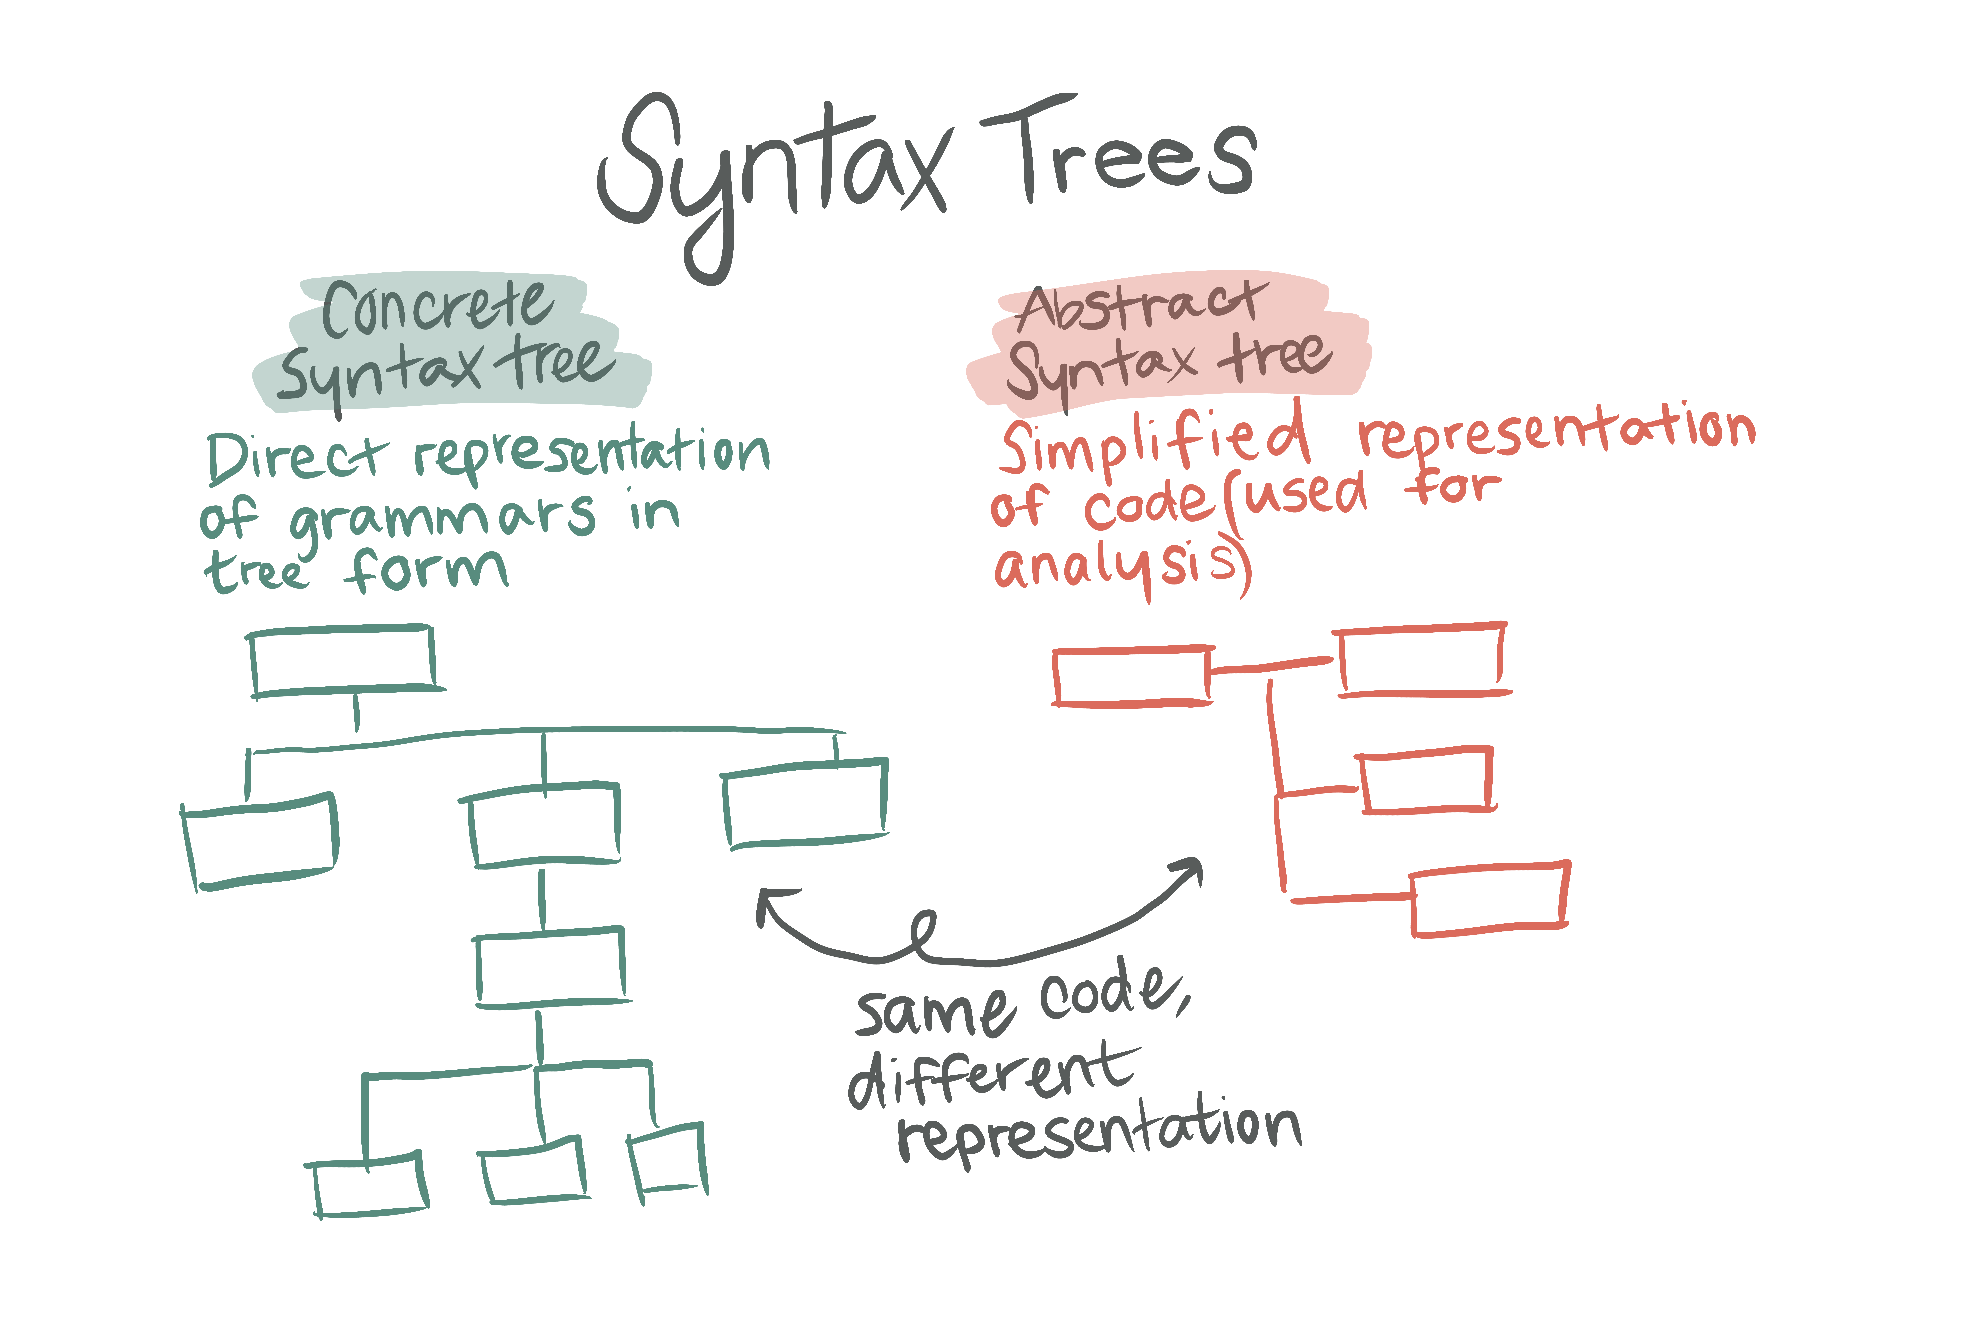 Syntax Trees
Concrete
Syntax tree
Direct representation
of grammars in
tree form
Abstract
Syntax tree
Simplified representation
of code (used for
analysis)
same code,
different
representation